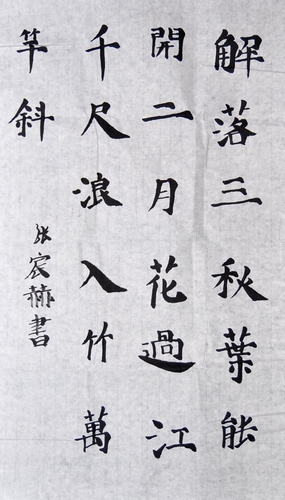 解落三秋葉能
開二月花過江
千尺浪入竹萬
竿斜
張宸赫書